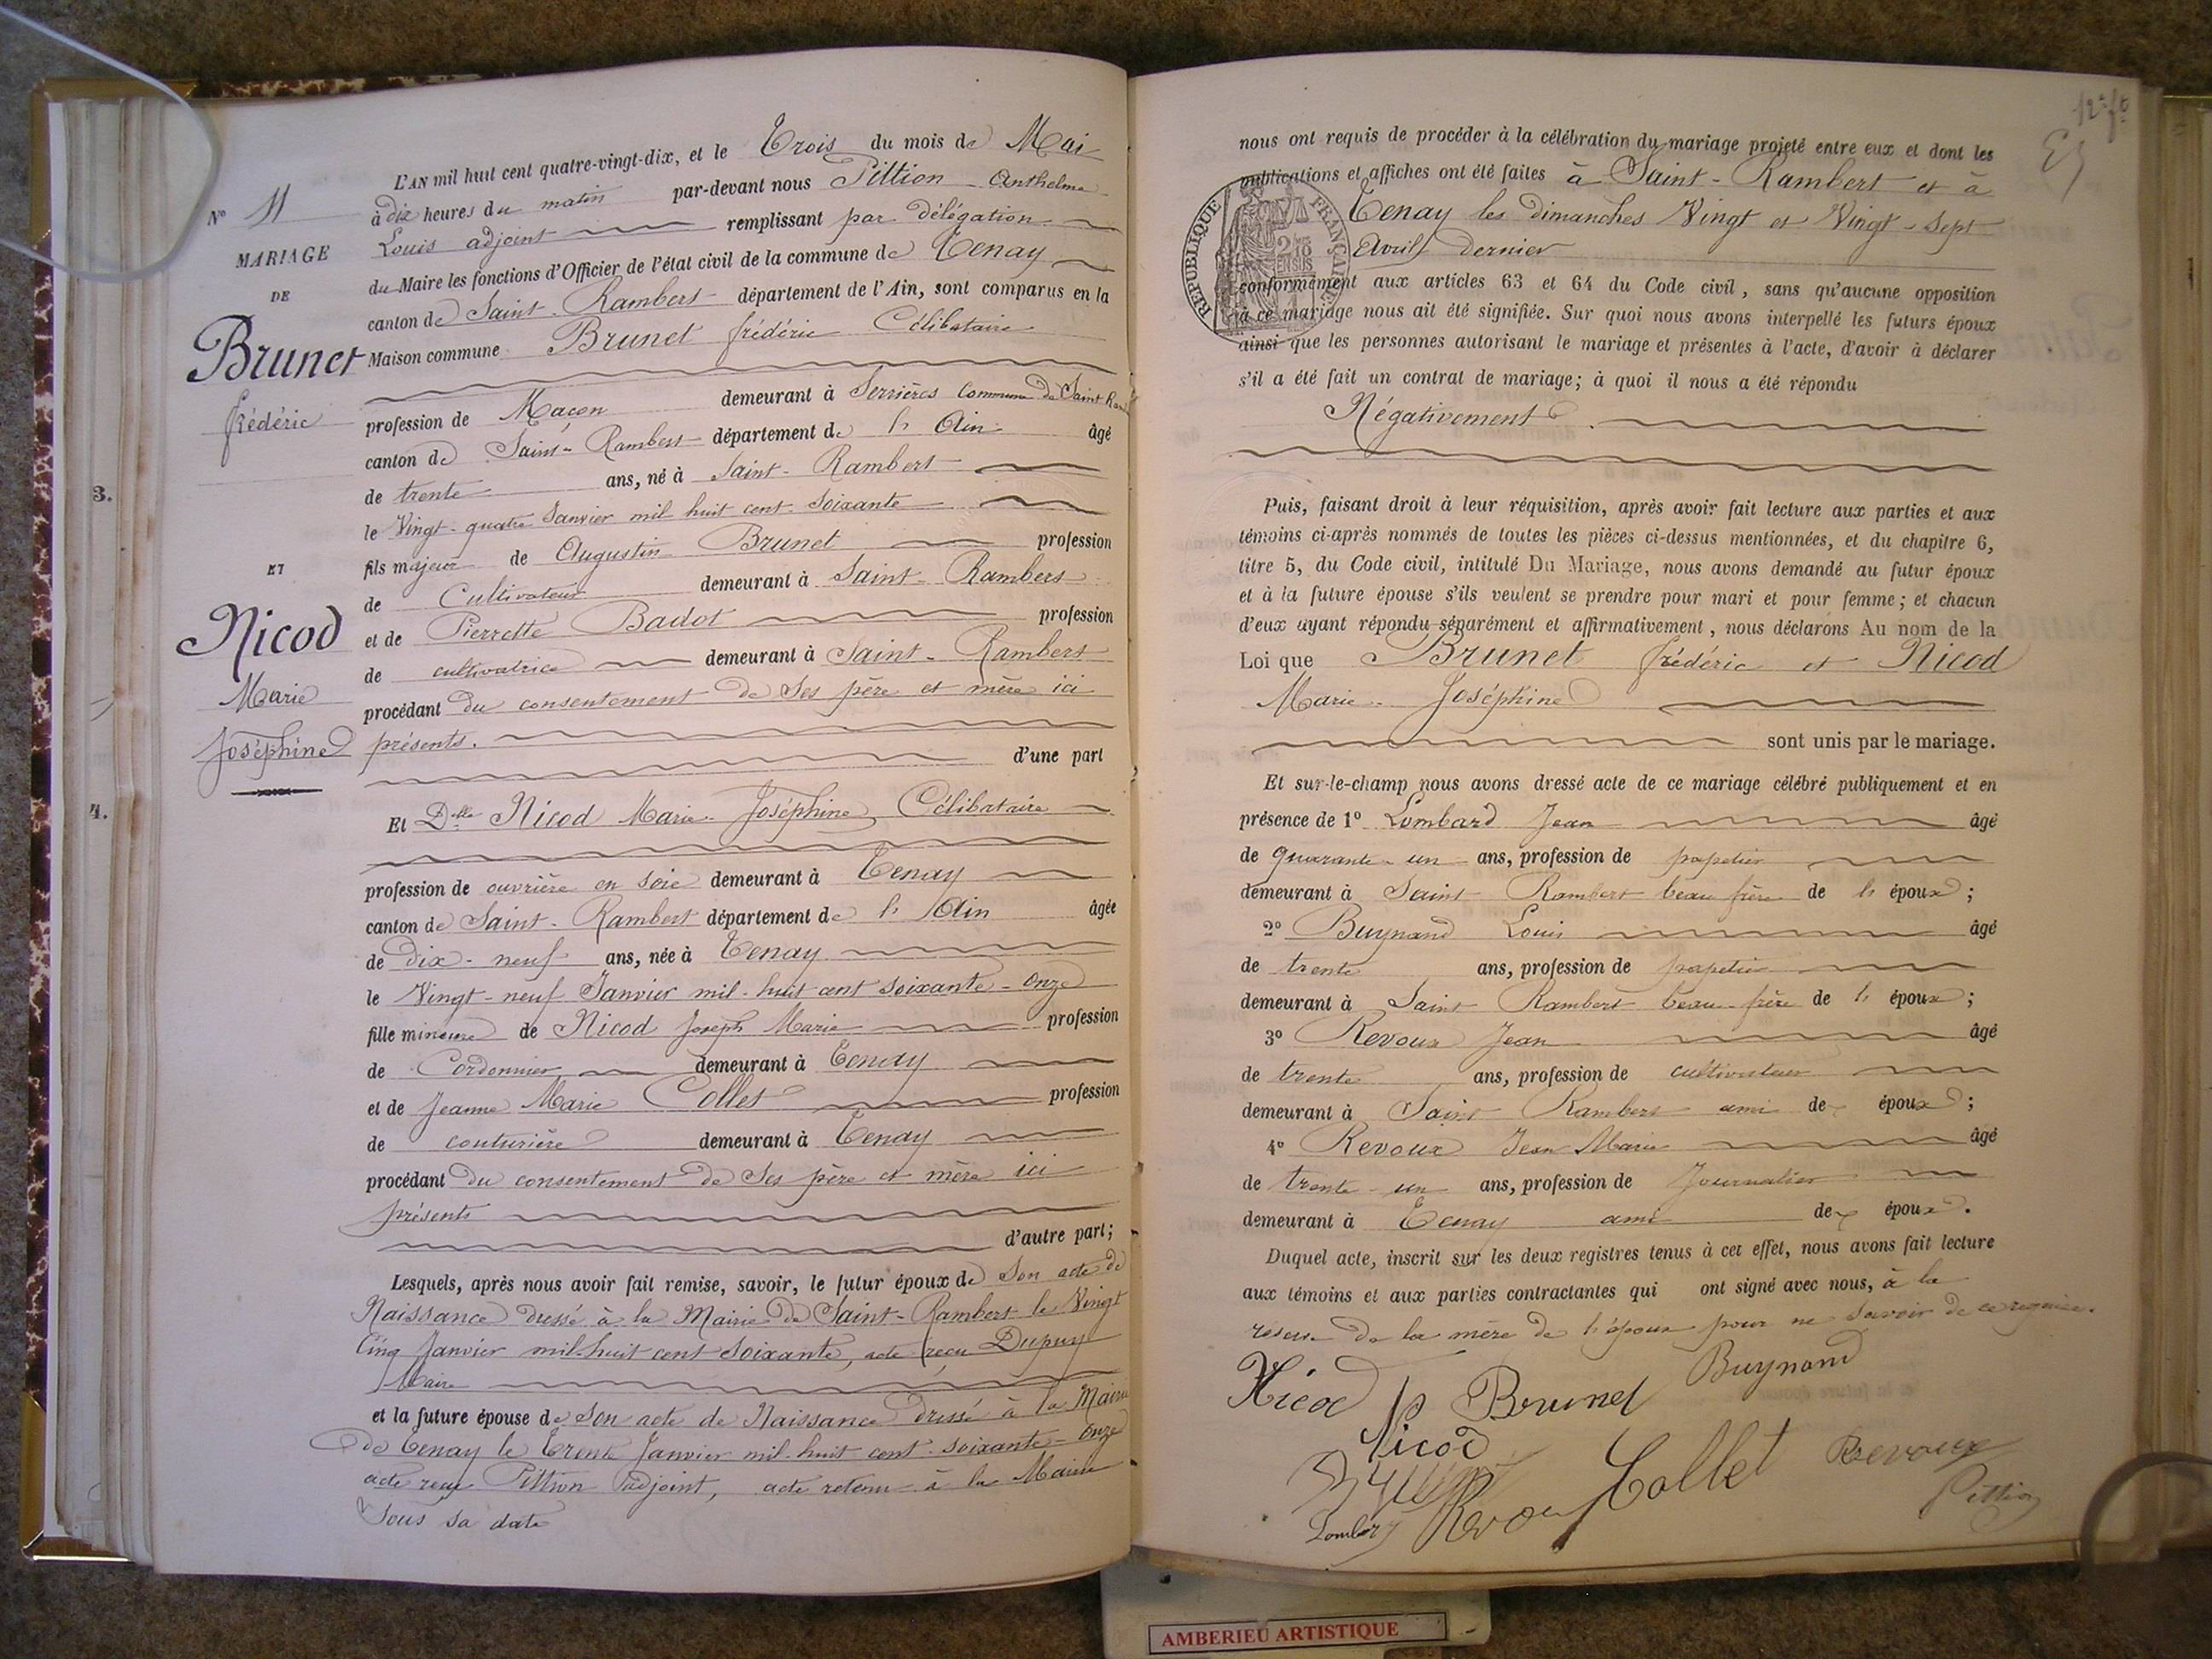 L'AN mil huit cent quatre-vingt-dix, et le Trois du mois de Mai
à dix heures du matin par-devant nous Pittion Anthelme
Louis adjoint remplissant par délégation
du Maire les fonctions d'Officier de l'état civil de la commune de Tenay
canton de Saint-Rambert département de l'Ain, sont comparus en la
Maison commune Brunet frédéric Célibataire
profession de Maçon demeurant à Serrières commune de Saint
canton de Saint-Rambert département de l'Ain âgé
de trente ans, né à Saint-Rambert
le Vingt-quatre Janvier mil huit cent soixante
fils majeur de Augustin Brunet profession
de Cultivateur demeurant à Saint-Rambert
et de Pierrette Badot profession
de cultivatrice demeurant à Saint-Rambert
procédant du consentement de ses père et mère ici
présents.
d'une part
Et Dlle Nicod Marie Joséphine, Célibataire
profession de ouvrière en soie demeurant à Tenay
canton de Saint-Rambert département de l'Ain âgée
de dix-neuf ans, née à Tenay
le Vingt-neuf Janvier mil-huit cent soixante-onze
fille mineure de Nicod Joseph Marie profession
de Cordonnier demeurant à Tenay
et de Jeanne Marie Collet profession
de couturière demeurant à Tenay
procédant du consentement de ses père et mère ici
présents
d'autre part;
Lesquels, après nous avoir fait remise, savoir, le futur époux de son acte de
Naissance dressé à la Mairie de Saint-Rambert le Vingt
Cinq Janvier mil-huit cent soixante, acte reçu Dupuy
Maire
et la future épouse de son acte de Naissance dressé à la Mairie
de Tenay le Trente Janvier mil-huit cent-soixante-onze
acte reçu Pittion adjoint, acte retenu à la Mairie
sous sa date
N° 11
MARIAGE
DE
Brunet
frédéric
ET
Nicod
Marie
Joséphine
3.
4.
nous ont requis de procéder à la célébration du mariage projeté entre eux et dont les
publications et affiches ont été faites à Saint-Rambert et à
Tenay les dimanches Vingt et Vingt-sept
Avril dernier
conformément aux articles 63 et 64 du Code civil, sans qu'aucune opposition
à ce mariage nous ait été signifiée. Sur quoi nous avons interpellé les futurs époux
ainsi que les personnes autorisant le mariage et présentes à l'acte, d'avoir à déclarer
s'il a été fait un contrat de mariage; à quoi il nous a été répondu
Négativement.
RÉPUBLIQUE FRANÇAISE
Puis, faisant droit à leur réquisition, après avoir fait lecture aux parties et aux
témoins ci-après nommés de toutes les pièces ci-dessus mentionnées, et du chapitre 6,
titre 5, du Code civil, intitulé Du Mariage, nous avons demandé au futur époux
et à la future épouse s'ils veulent se prendre pour mari et pour femme; et chacun
d'eux ayant répondu séparément et affirmativement, nous déclarons Au nom de la
Loi que Brunet frédéric et Nicod
Marie Joséphine
sont unis par le mariage.
Et sur-le-champ nous avons dressé acte de ce mariage célébré publiquement et en
présence de 1° Lombard Jean âgé
de quarante-un ans, profession de papetier
demeurant à Saint Rambert beau frère de l'époux;
2° Buynand Louis âgé
de trente ans, profession de papetier
demeurant à Saint Rambert beau-frère de l'époux;
3° Revoux Jean âgé
de trente ans, profession de cultivateur
demeurant à Saint Rambert ami de époux;
4° Revoux Jean Marie âgé
de trente-un ans, profession de Journalier
demeurant à Tenay ami de époux.
Duquel acte, inscrit sur les deux registres tenus à cet effet, nous avons fait lecture
aux témoins et aux parties contractantes qui ont signé avec nous, à la
réserve de la mère de l'époux pour ne savoir de ce requise.
Nicod Brunet Buynand
Nicod
Collet Revoux
Lombard Revoux Pittion
AMBERIEU ARTISTIQUE